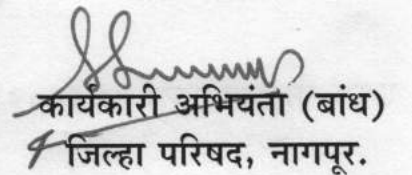 कार्यकारी अभियंता (बांध)
जिल्हा परिषद, नागपूर.